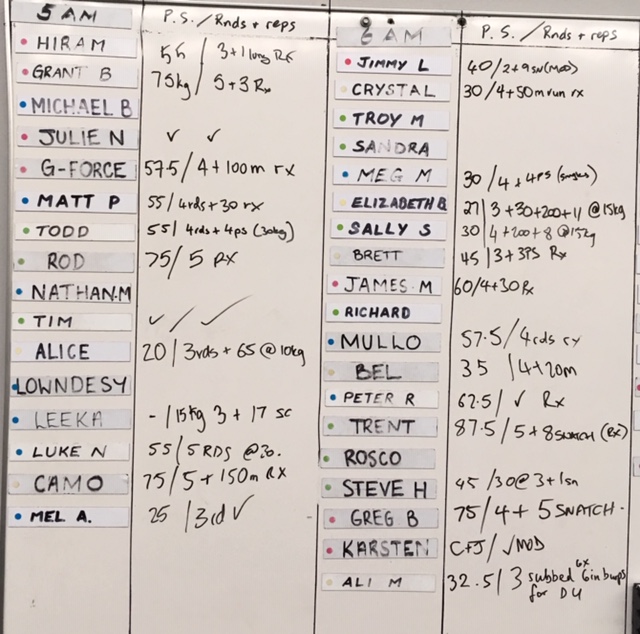 5 AM P.S. / Rnds + reps
HIRAM 55 / 3+1 lung Rx
GRANT B 75kg / 5+3 Rx
MICHAEL B
JULIE N ✓ ✓
G-FORCE 57.5 / 4 + 100m rx
MATT P 55 / 4rds + 30 rx
TODD 55 / 4rds + 4ps (30kg)
ROD 75 / 5 RX
NATHAN.M
TIM ✓ / ✓
ALICE 20 | 3rds + 65 @ 10kg
LOWNDESY
LEEKA - / 15kg 3 + 17 sc
LUKE N 55 / 5 RDS @30.
CAMO 75 / 5 + 150m RX
MEL A. 25 / 3rd ✓
AM P.S. / Rnds + reps
JIMMY L 40 / 2+9sn (MOD)
CRYSTAL 30 / 4+50m run rx
TROY M
SANDRA
MEG M 30 / 4 + 4ps (singles)
ELIZABETH B 27 | 3 + 30+200+11 @15kg
SALLY S 30 | 4+200+8 @15kg
BRETT 45 | 3+3PS Rx
JAMES M 60/4+30 Rx
RICHARD
MULLO 57.5 / 4rds rx
BEL 35 | 4+20m
PETER R 62.5 / ✓ Rx
TRENT 87.5 / 5+8 SNATCH (Rx)
ROSCO
STEVE H 45 / 30@ 3+1sn
GREG B 75 / 4 + 5 SNATCH.
KARSTEN C+J / ✓MOD
ALI M 32.5 | 3 subbed 6in bumps
for DU